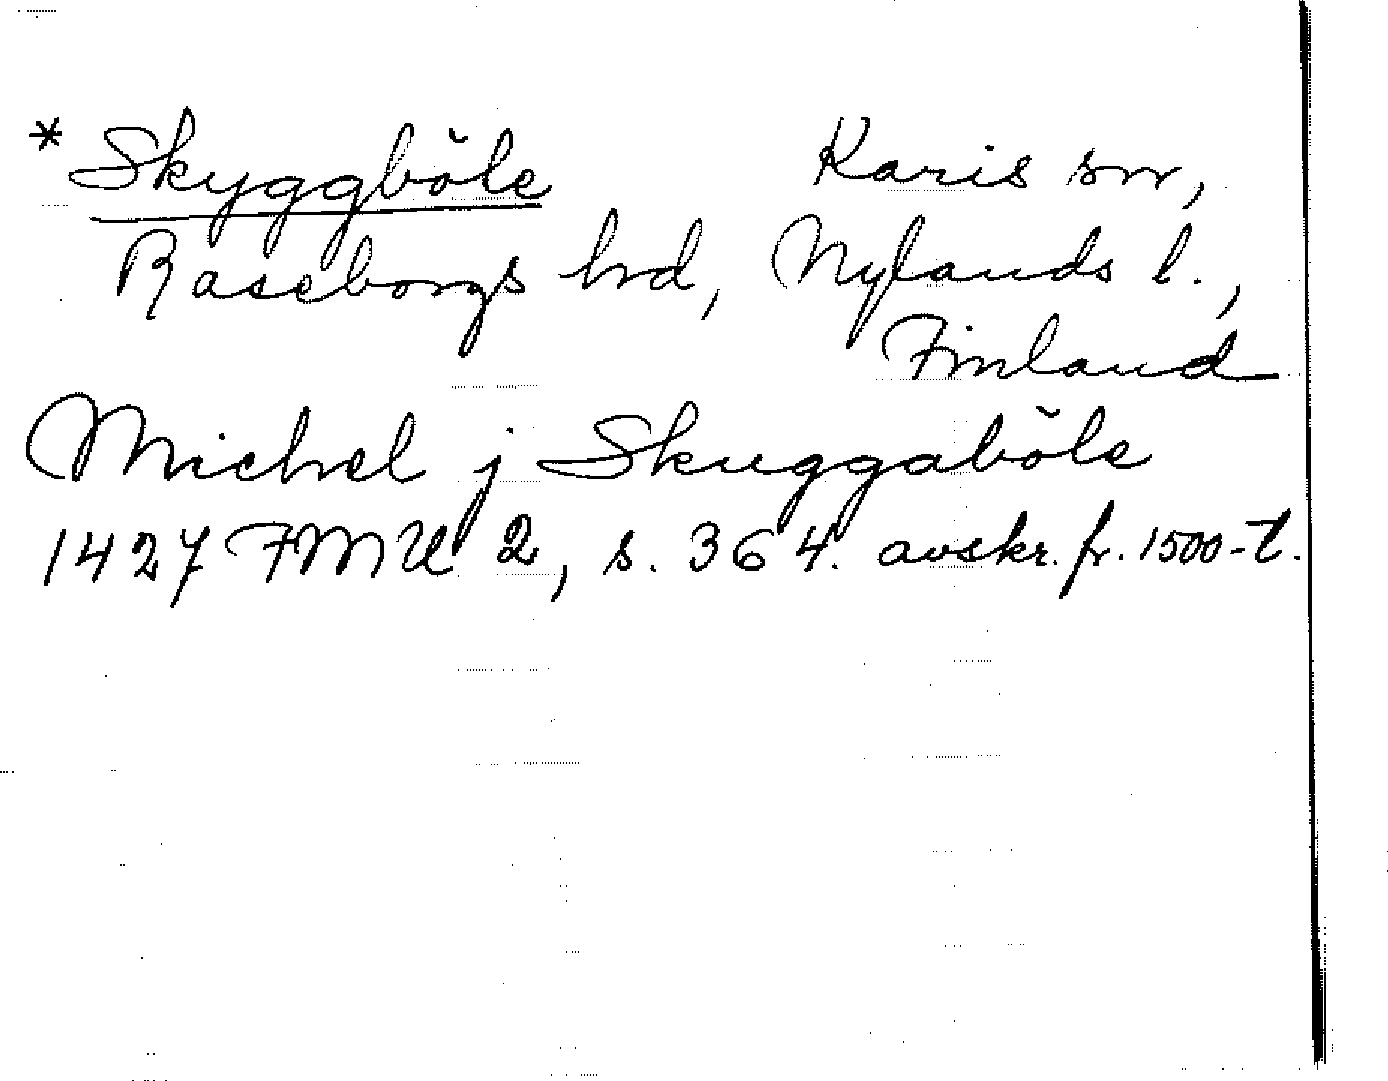 * Skyggböle Karis sn,
Raseborgs hrd, Nylands l.,
Finland
Michel j Skuggaböle
1427 FMU 2, s. 364. avskr. fr. 1500-t.